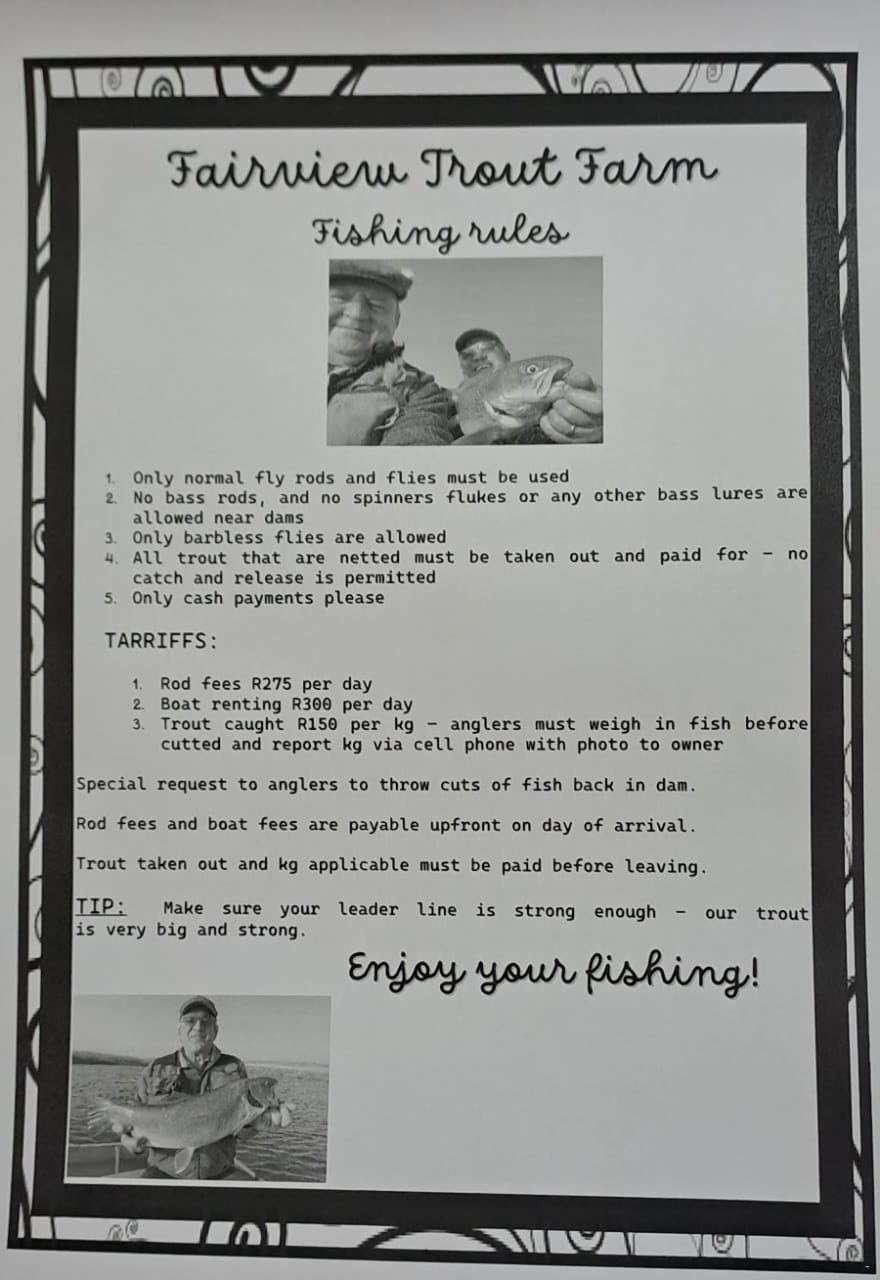 Fairview Trout Farm
Fishing rules
1. Only normal fly rods and flies must be used
2. No bass rods, and no spinners flukes or any other bass lures are
allowed near dams
3. Only barbless flies are allowed
4. All trout that are netted must be taken out and paid for – no
catch and release is permitted
5. Only cash payments please
TARRIFFS:
1. Rod fees R275 per day
2. Boat renting R300 per day
3. Trout caught R150 per kg – anglers must weigh in fish before
cutted and report kg via cell phone with photo to owner
Special request to anglers to throw cuts of fish back in dam.
Rod fees and boat fees are payable upfront on day of arrival.
Trout taken out and kg applicable must be paid before leaving.
TIP: Make sure your leader line is strong enough – our trout
is very big and strong.
Enjoy your fishing!